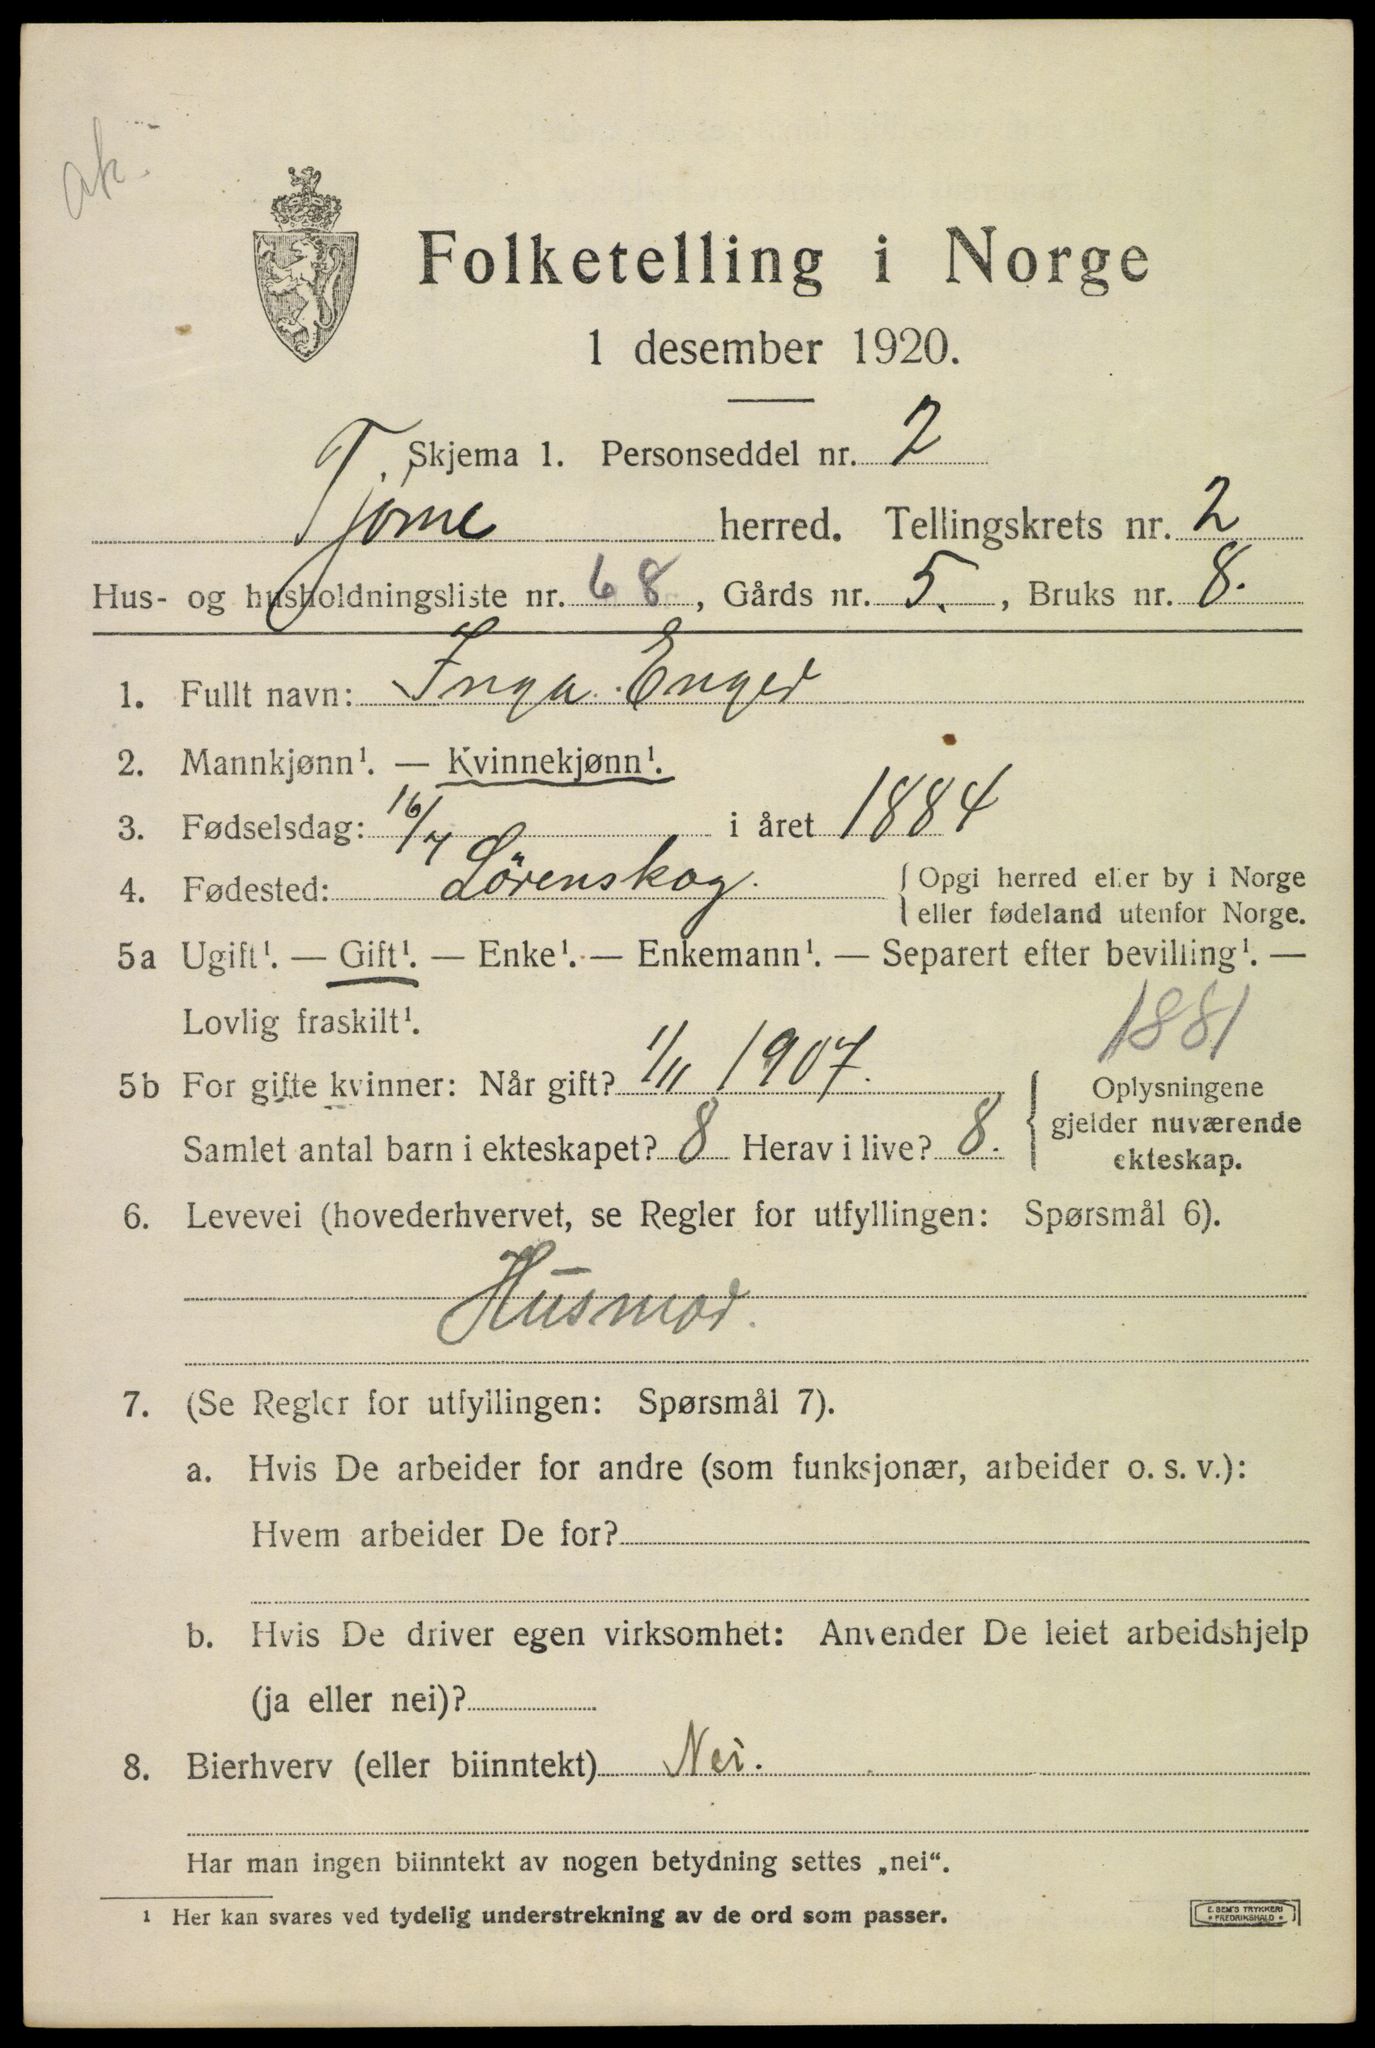 ak.
Folketelling i Norge
1 desember 1920.
Skjema 1. Personseddel nr. 2
Tjøme herred. Tellingskrets nr. 2
Hus- og husholdningsliste nr. 68, Gårds nr. 5., Bruks nr. 8.
1. Fullt navn: Inga Enger
2. Mannkjønn¹. — Kvinnekjønn¹.
3. Fødselsdag: 16/7 i året 1884
4. Fødested: Lörenskog. { Opgi herred eller by i Norge
eller fødeland utenfor Norge.
5a Ugift¹. — Gift¹. — Enke¹. — Enkemann¹. — Separert efter bevilling¹. —
Lovlig fraskilt¹.
1881
5b For gifte kvinner: Når gift? 1/11 1907.
Samlet antal barn i ekteskapet? 8 Herav i live? 8.
{ Oplysningene
gjelder nuværende
ekteskap.
6. Levevei (hovederhvervet, se Regler for utfyllingen: Spørsmål 6).
Husmor.
7. (Se Regler for utfyllingen: Spørsmål 7).
a. Hvis De arbeider for andre (som funksjonær, arbeider o. s. v.):
Hvem arbeider De for?
b. Hvis De driver egen virksomhet: Anvender De leiet arbeidshjelp
(ja eller nei)?
8. Bierhverv (eller biinntekt) Nei.
Har man ingen biinntekt av nogen betydning settes „nei“.
¹ Her kan svares ved tydelig understrekning av de ord som passer.
E. SEM'S TRYKKERI
FREDRIKSHALD